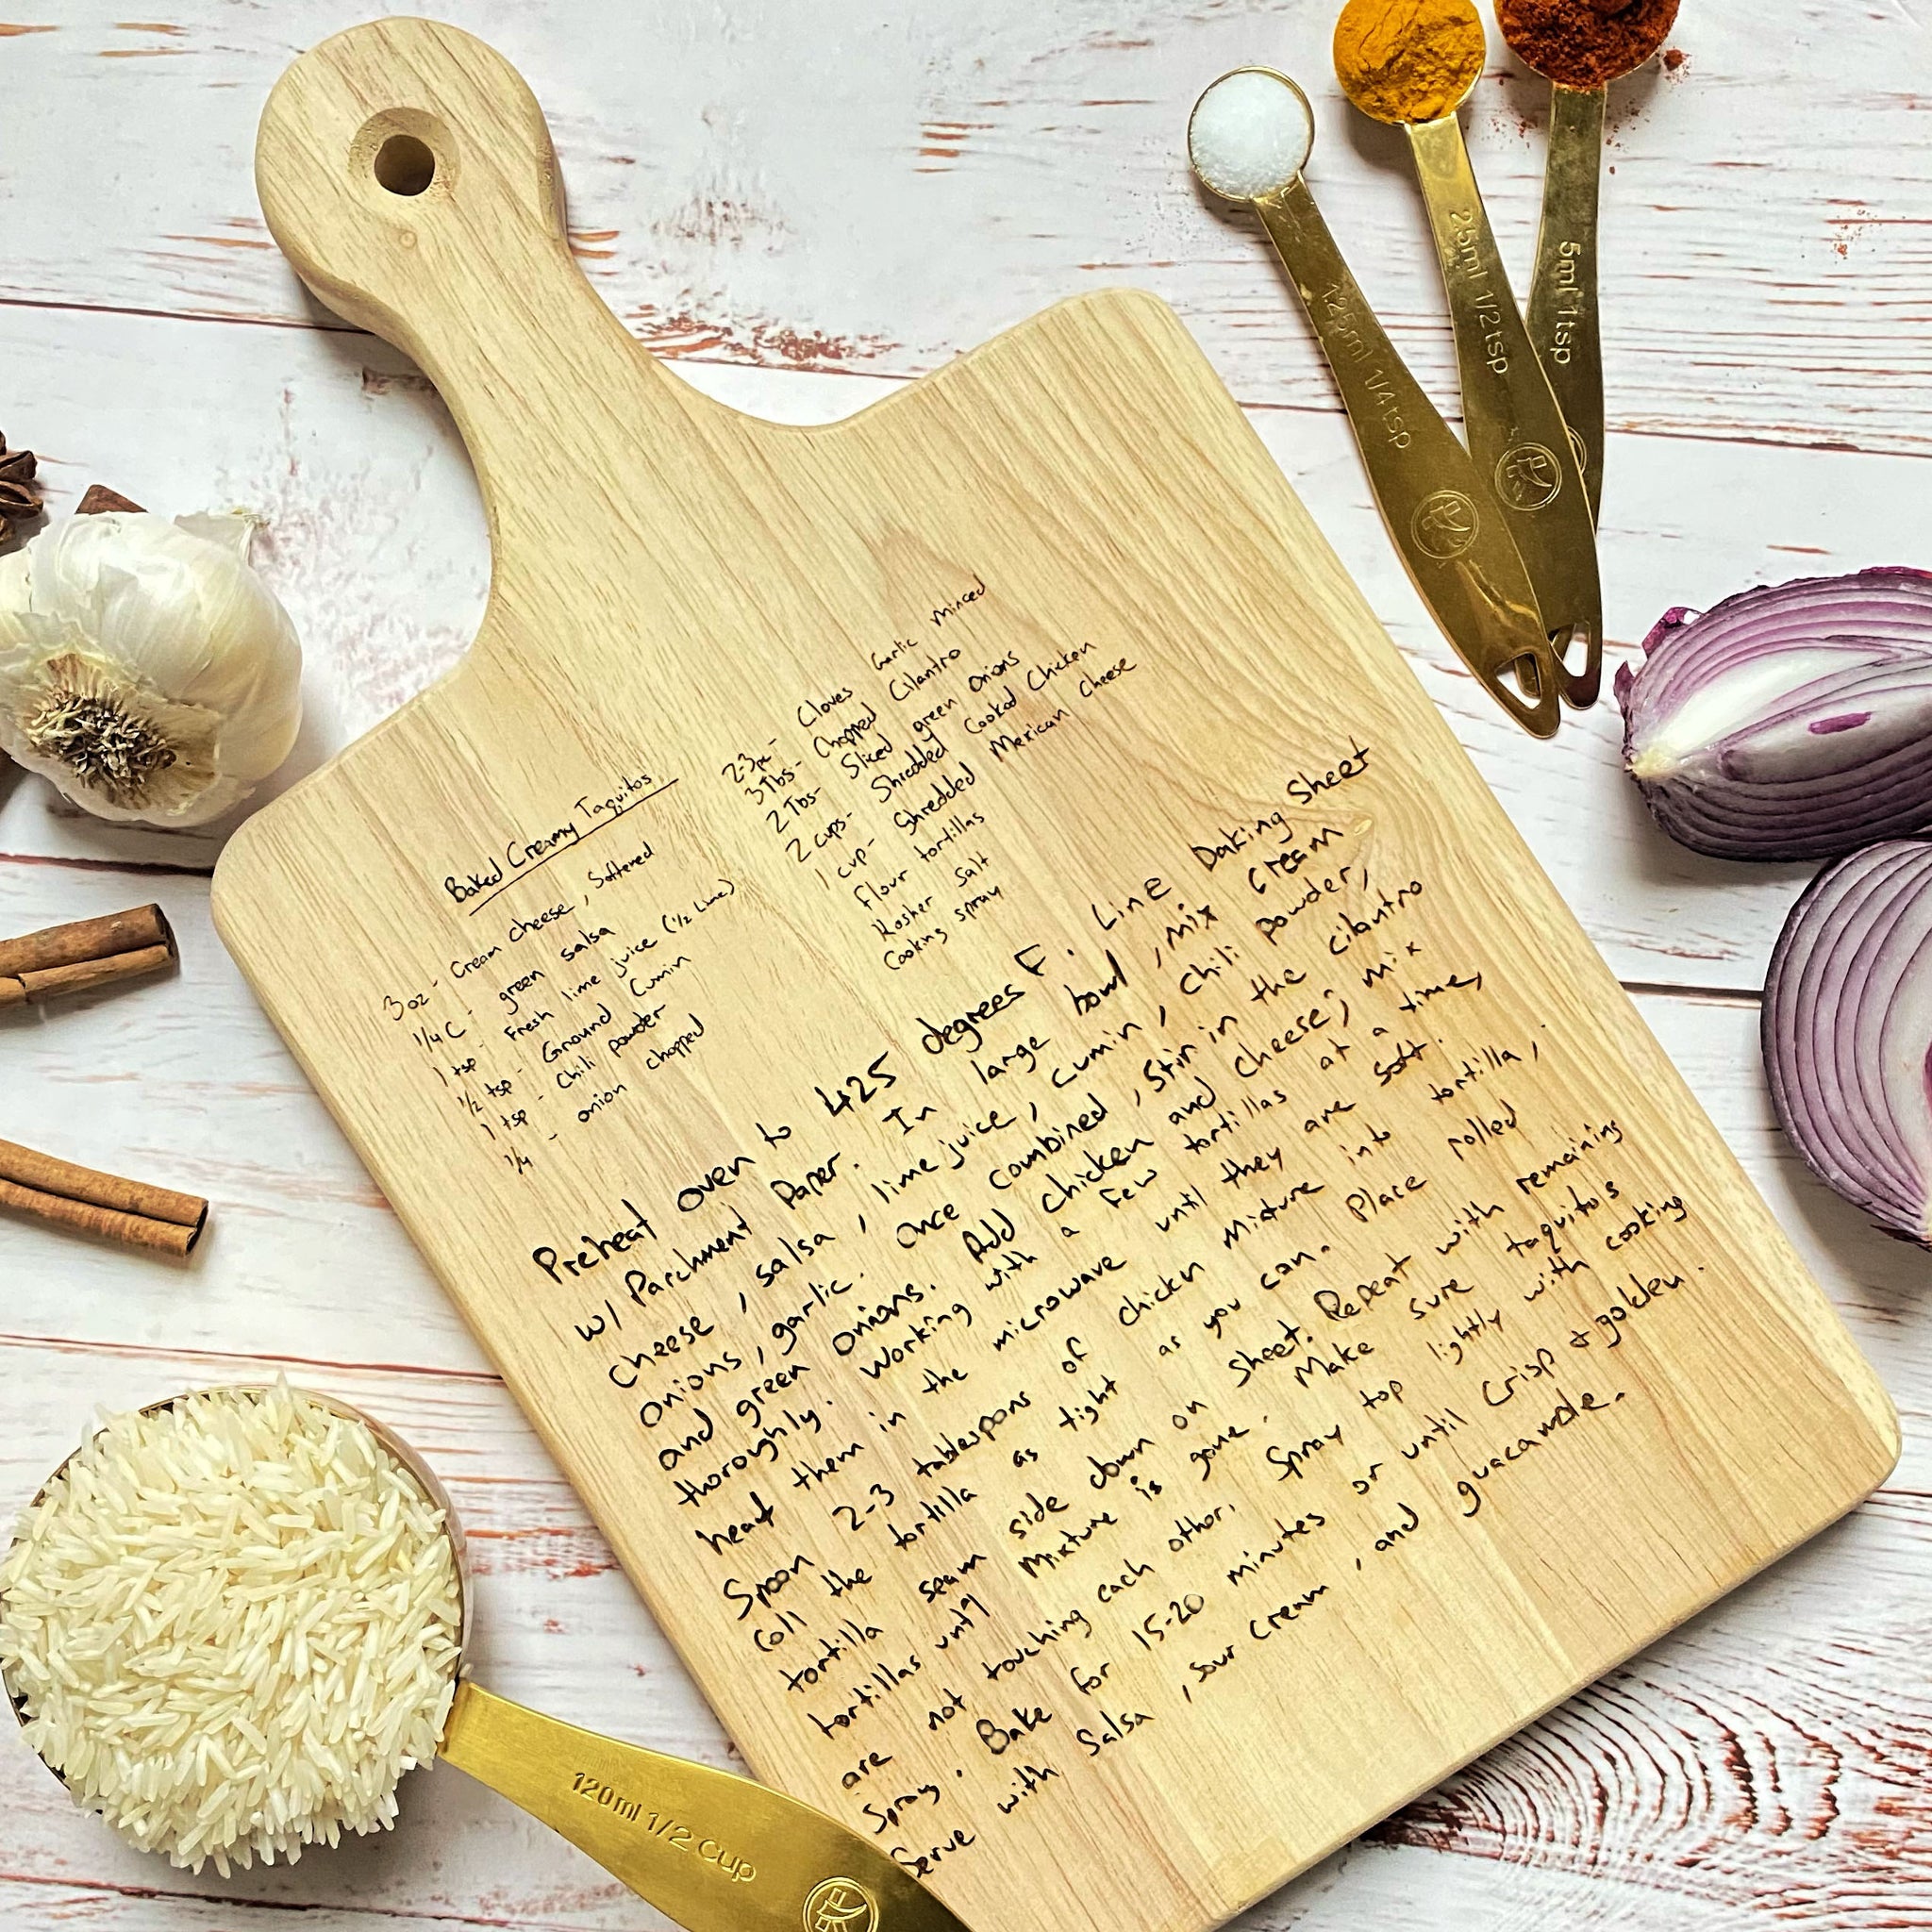 Baked Creamy Taquitos
3 oz - Cream cheese, Softened
1/4 C - green salsa
1 tsp - Fresh lime juice (1/2 Lime)
1/2 tsp - Ground Cumin
1 tsp - Chili powder
1/4 - onion chopped
2-3pc - Cloves Garlic Minced
3 Tbs- Chopped Cilantro
2 Tbs- Sliced green onions
2 cups- Shredded Cooked Chicken
1 cup- Shredded Mexican Cheese
Flour tortillas
Kosher Salt
Cooking spray
Preheat oven to 425 degrees F. Line Baking Sheet
w/ Parchment Paper. In large bowl, mix Cream
cheese, salsa, lime juice, cumin, chili powder,
onions, garlic. Once combined, Stir in the cilantro
and green onions. Add chicken and cheese; mix
thoroughly. Working with a few tortillas at a time,
heat them in the microwave until they are soft.
Spoon 2-3 tablespons of chicken Mixture into tortilla,
Coll the tortilla as tight as you can. Place rolled
tortilla seam side down on Sheet. Repeat with remaining
tortillas until Mixture is gone. Make sure taquitos
are not touching each other. Spray top lightly with cooking
Spray. Bake for 15-20 minutes or until Crisp & golden.
Serve with Salsa, sour cream, and guacamole.
1.25ml 1/4tsp
2.5ml 1/2tsp
5ml 1tsp
120ml 1/2 Cup